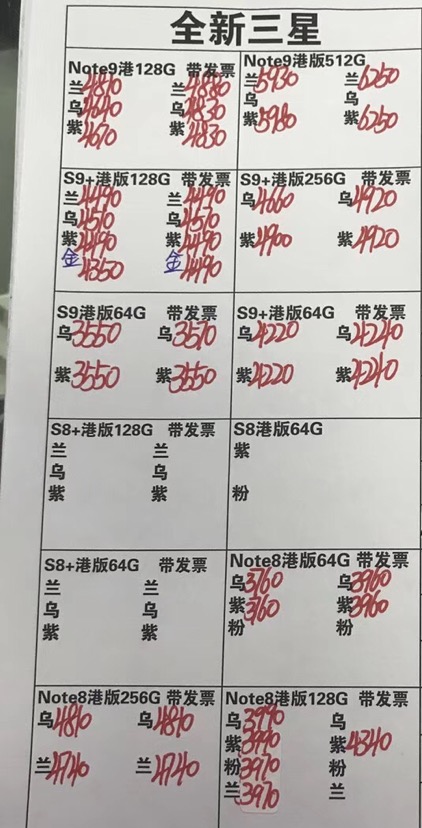 全新三星
Note9港128G 带发票
兰4810 兰4880
乌4640 乌4830
紫4670 紫4830
Note9港版512G
兰5930 兰6250
乌 乌
紫5980 紫6250
S9+港版128G 带发票
兰4490 兰4490
乌4510 乌4570
紫4490 紫4490
金4350 金4490
S9+港版256G 带发票
乌4660 乌4920
紫4900 紫4920
S9港版64G 带发票
乌3550 乌3570
紫3550 紫3550
S9+港版64G 带发票
乌4220 乌4240
紫4220 紫4240
S8+港版128G 带发票
兰 兰
乌 乌
紫 紫
S8港版64G
紫
粉
S8+港版64G 带发票
兰 兰
乌 乌
紫 紫
Note8港版64G 带发票
乌3760 乌3960
紫3760 紫3960
粉 粉
Note8港版256G 带发票
乌4810 乌4810
兰4740 兰4740
Note8港版128G 带发票
乌3990 乌
紫3990 紫4340
粉3970 粉
兰3970 兰